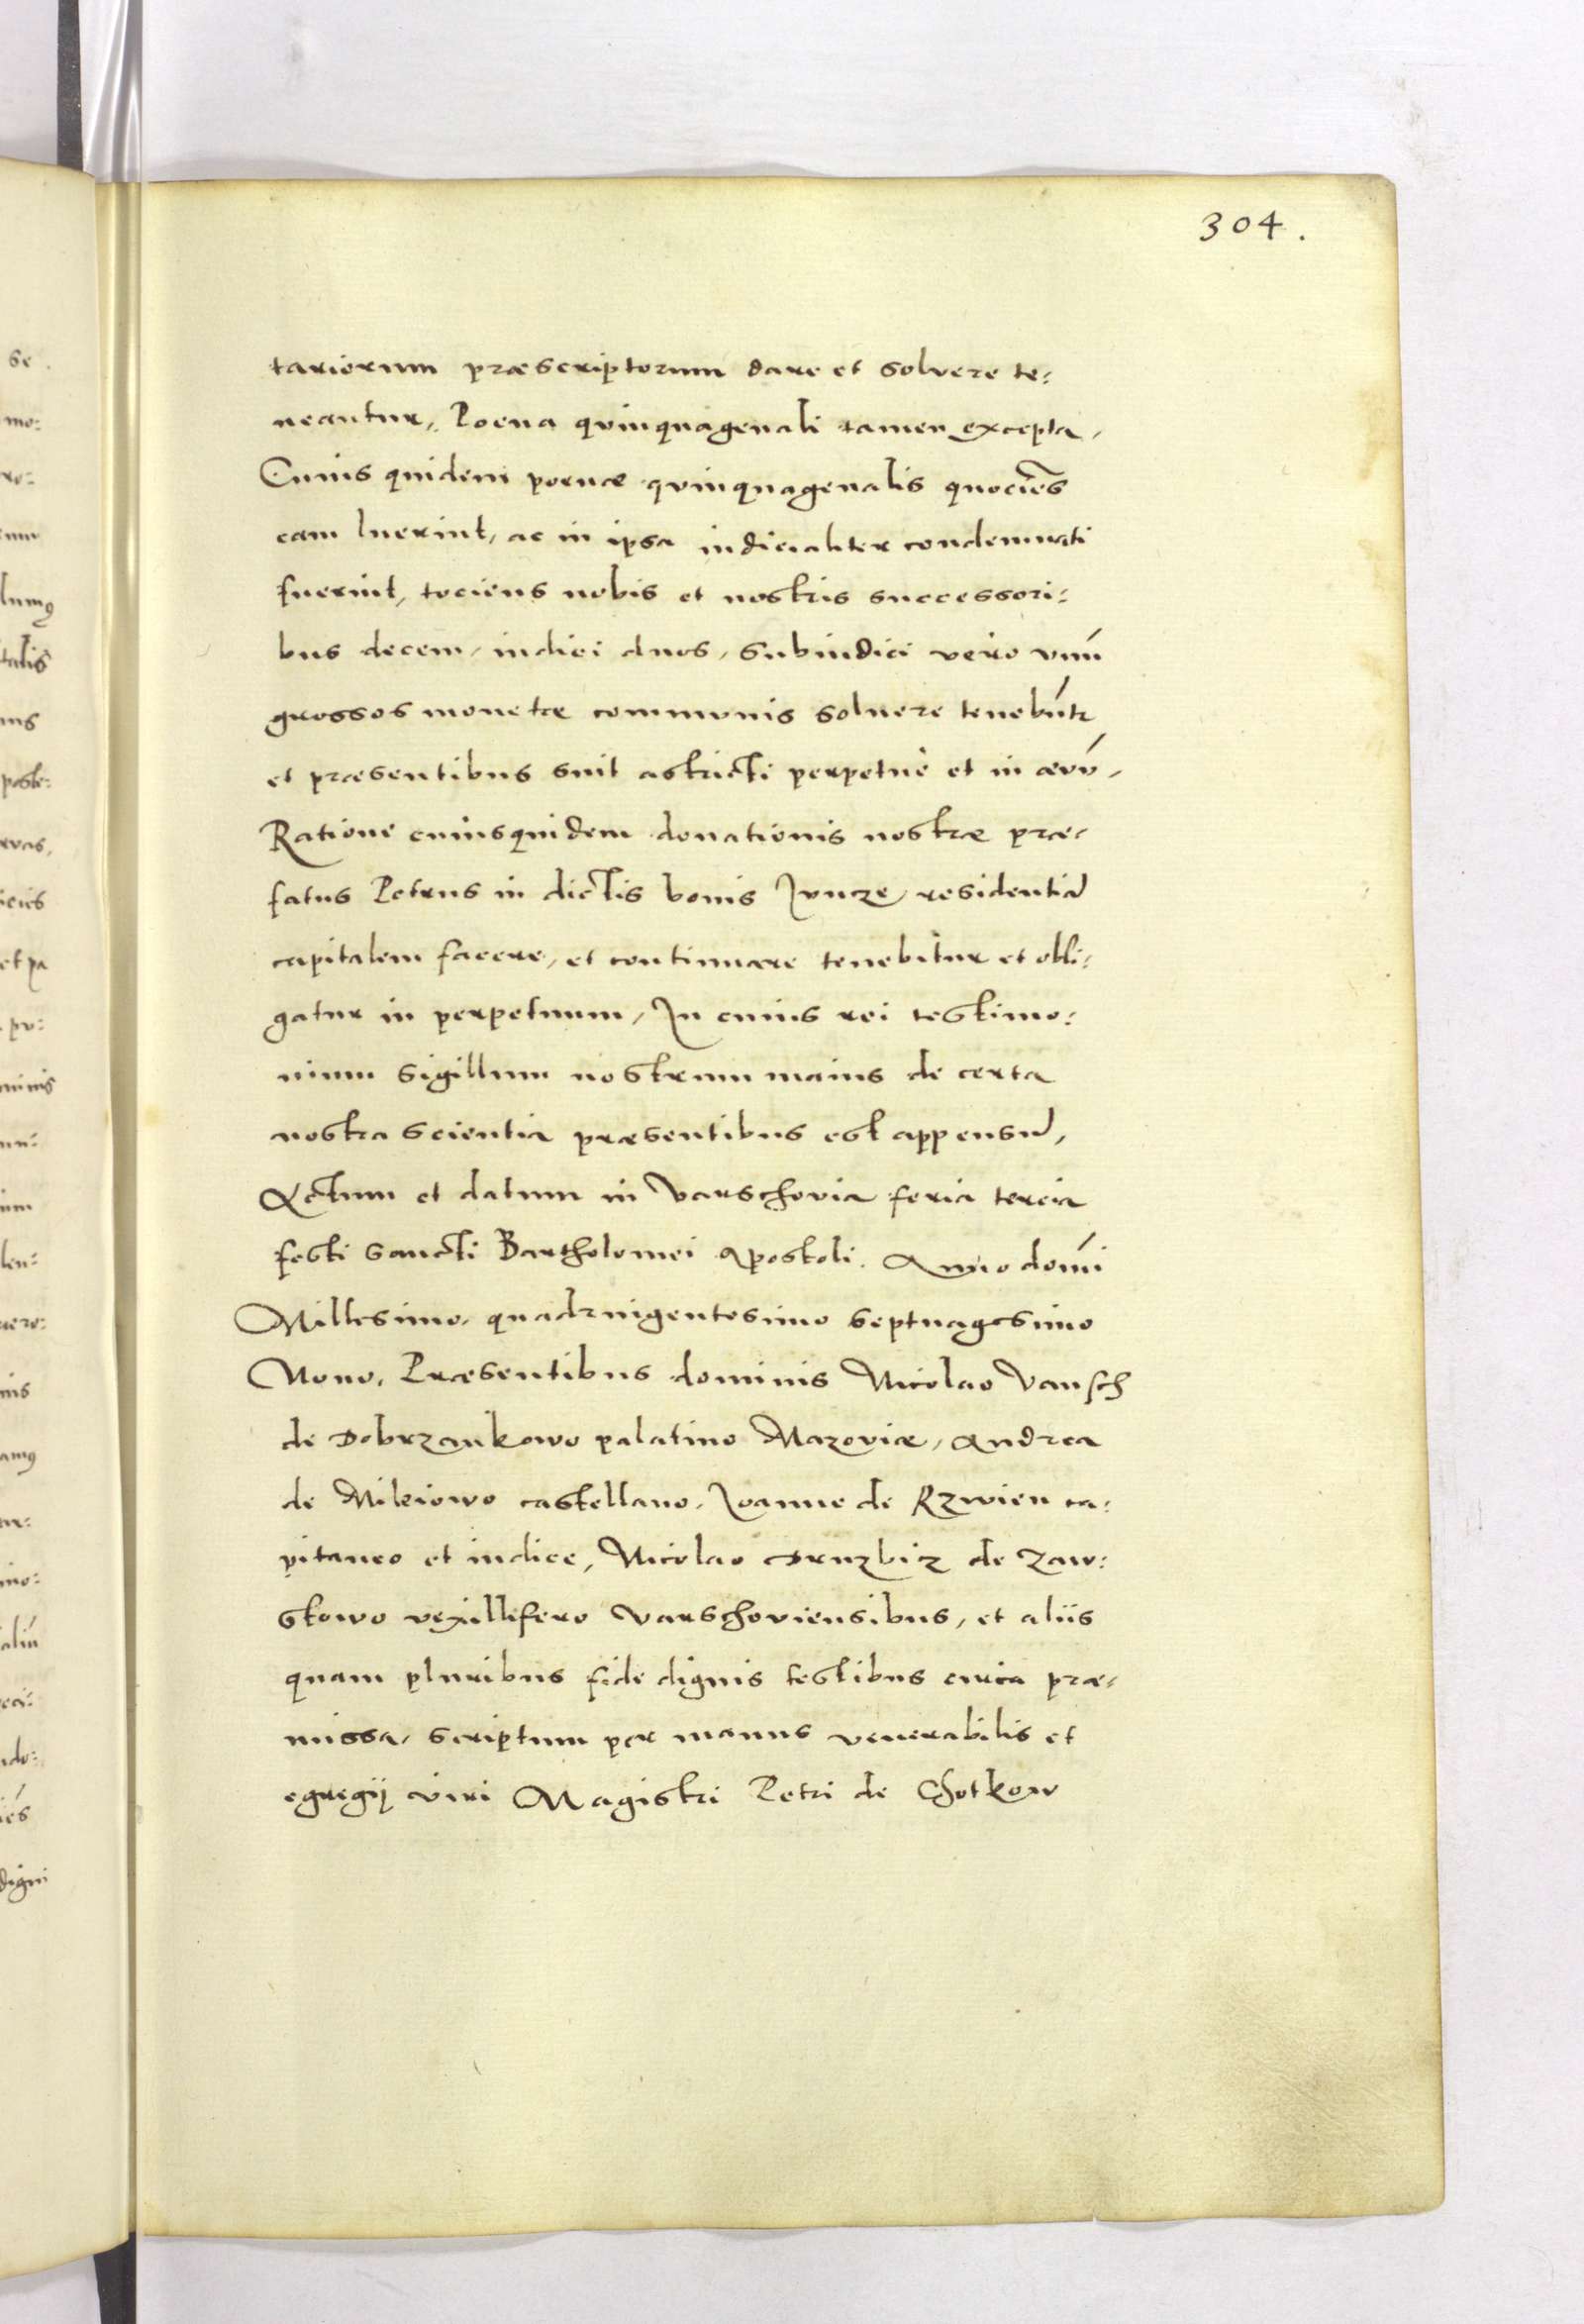 304.
tariorum præscriptorum dare et solvere te:
neantur, Poena quinquagenali tamen excepta,
Cuius quidem poenæ quinquagenalis quociēs
eam luerint, ac in ipsa iudicialiter condemnati
fuerint, tociens nobis et nostris successori:
bus decem, iudici duos, subiudici vero unū
grossos monetæ communis soluere tenebūtr
et præsentibus sunt astricti perpetue et in ævū,
Ratione cuiusquidem donationis nostræ præ:
fatus Petrus in dictis bonis Juncze, residentiā
capitalem facere, et continuare tenebitur et obli:
gatur in perpetuum, In cuius rei testimo:
nium sigillum nostrum maius de certa
nostra scientia præsentibus est appensū,
Actum et datum in Varschovia feria tercia
festi sancti Bartholomei Apostoli. Anno domī
Millesimo, quadringentesimo septuagesimo
Nono, Præsentibus dominis Nicolao Vansch
de Dobrzankowo palatino Mazoviæ, Andrea
de Mileiowo castellano, Joanne de Rzwien ca:
pitaneo et iudice, Nicolao Druzbicz de Zaw:
stowo vexillifero Varschoviensibus, et aliis
quam pluribus fide dignis testibus circa præ:
missa, scriptum per manus venerabilis et
egregij viri Magistri Petri de Chotkow